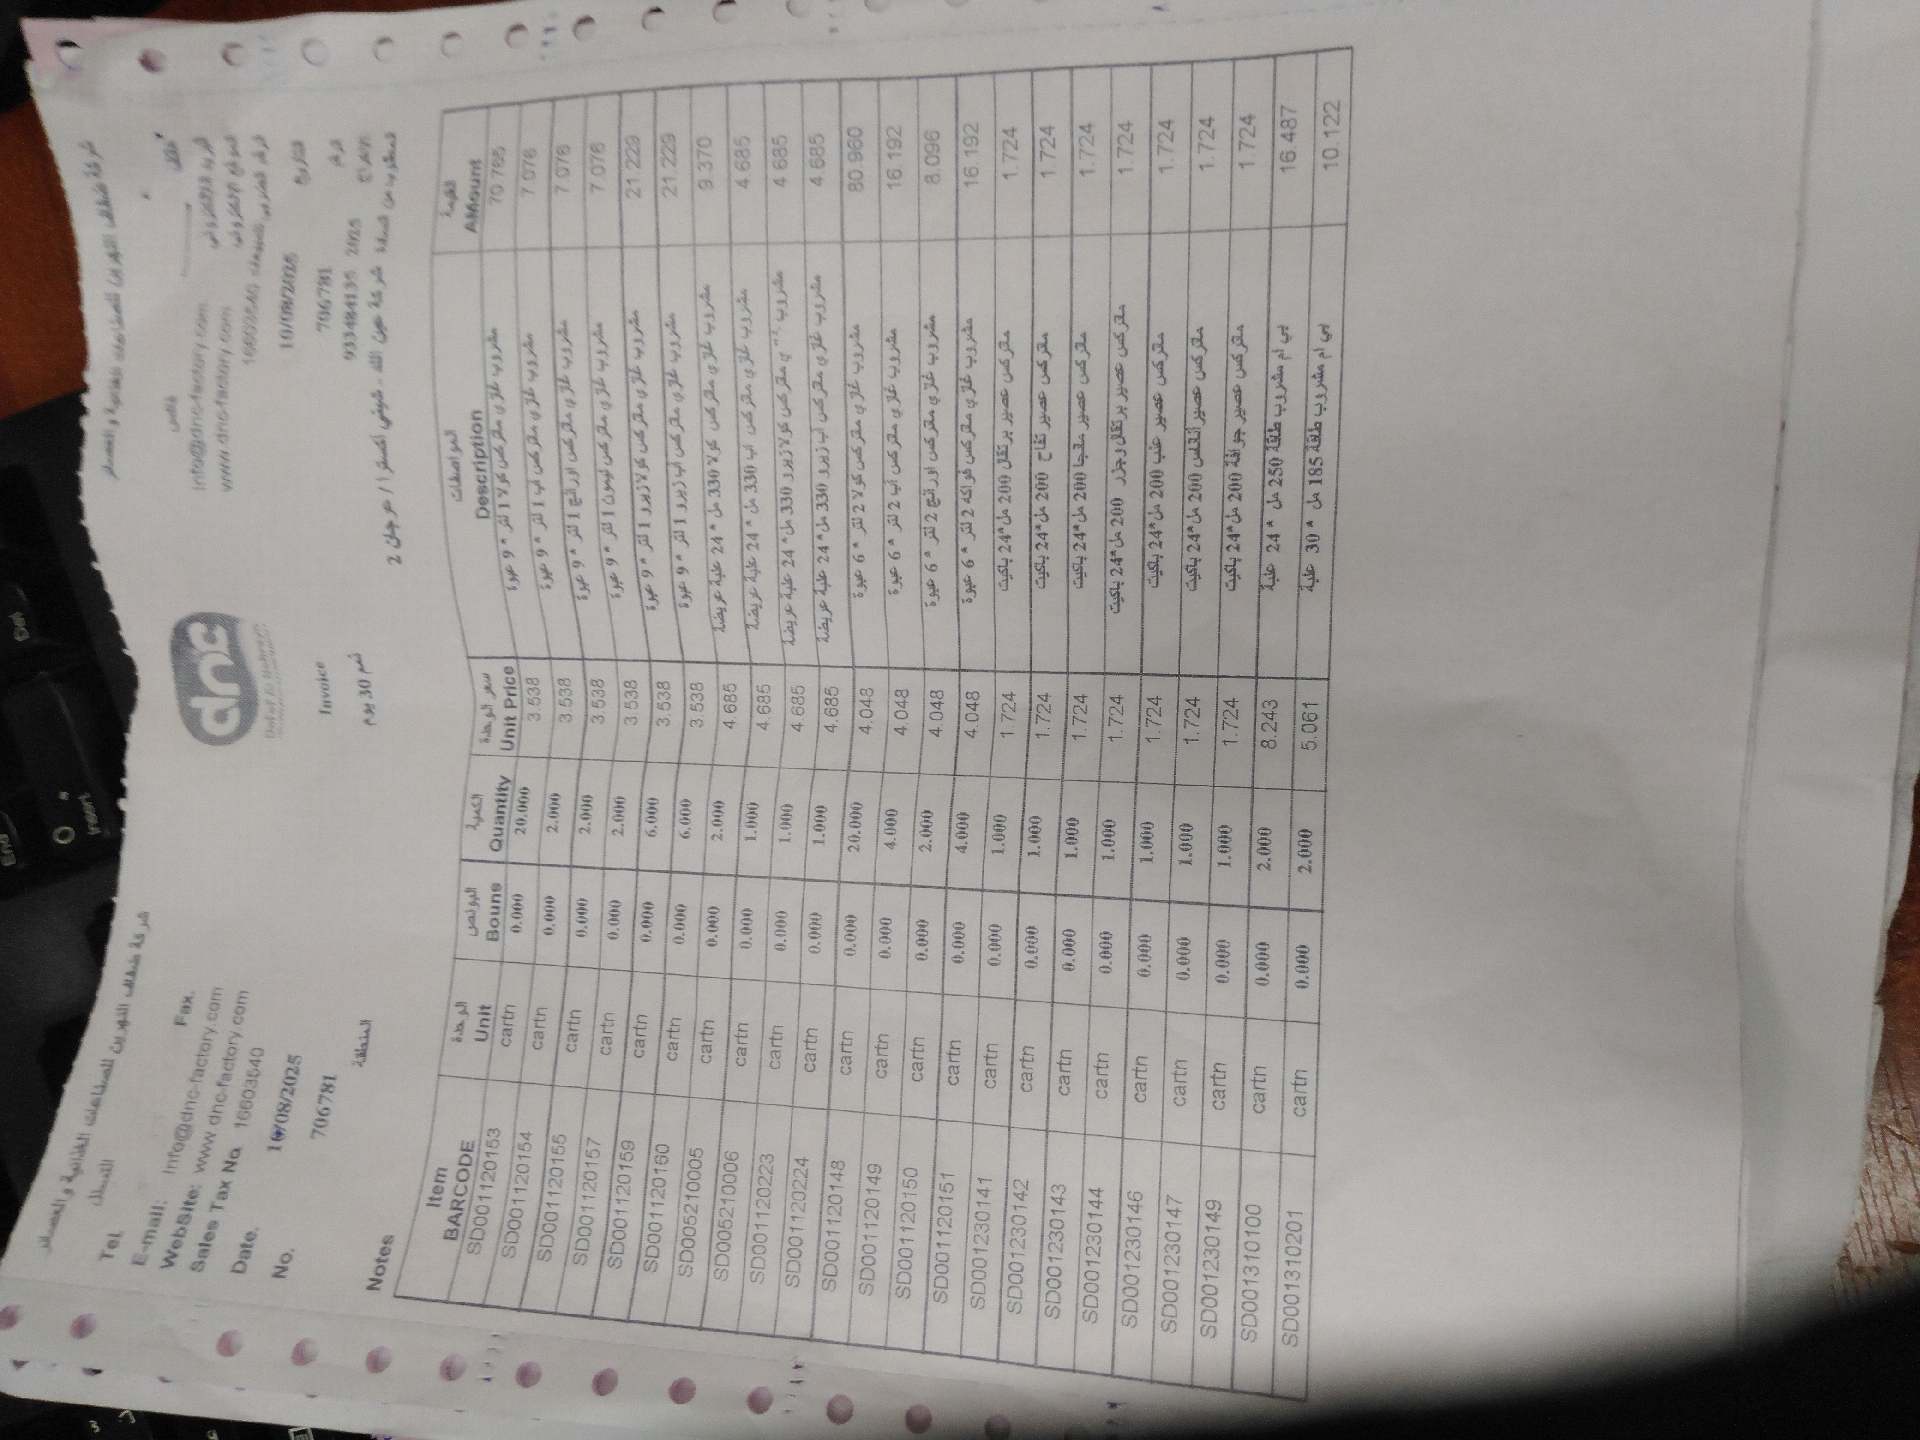 شركة ضفاف النهرين للصناعات الغذائية والعصائر
Tel.
Fax.
فاكس
E-mail: Info@dnc-factory.com
Info@dnc-factory.com البريد الالكتروني
WebSite: www.dnc-factory.com
www.dnc-factory.com الموقع الالكتروني
Sales Tax No. 16603540
16603540
dnc
Date. 10/08/2025
10/08/2025 التاريخ
No. 706781
Invoice
706781 الرقم
933484135 2025
ذمم 30 يوم
Notes
المنطقة
المطلوب من السادة شركة عين الله
Item BARCODE | الوحدة Unit | البونص Bouns | الكمية Quantity | سعر الوحدة Unit Price | المواصفات Description | القيمة Amount
SD001120153 cartn 0.000 20.000 3.538 مشروب غازي متركس كولا 1 لتر * 9 عبوة 70.765
SD001120154 cartn 0.000 2.000 3.538 مشروب غازي متركس اب 1 لتر * 9 عبوة 7.076
SD001120155 cartn 0.000 2.000 3.538 مشروب غازي متركس اورانج 1 لتر * 9 عبوة 7.076
SD001120157 cartn 0.000 2.000 3.538 مشروب غازي متركس ليمون 1 لتر * 9 عبوة 7.076
SD001120159 cartn 0.000 6.000 3.538 مشروب غازي متركس كولا زيرو 1 لتر * 9 عبوة 21.229
SD001120160 cartn 0.000 6.000 3.538 مشروب غازي متركس اب زيرو 1 لتر * 9 عبوة 21.229
SD005210005 cartn 0.000 2.000 4.685 مشروب غازي متركس كولا 330 مل * 24 علبة عريضة 9.370
SD005210006 cartn 0.000 1.000 4.685 مشروب غازي متركس اب 330 مل * 24 علبة عريضة 4.685
SD001120223 cartn 0.000 1.000 4.685 مشروب متركس كولا زيرو 330 مل* 24 علبة عريضة 4.685
SD001120224 cartn 0.000 1.000 4.685 مشروب غازي متركس اب زيرو 330 مل* 24 علبة عريضة 4.685
SD001120148 cartn 0.000 20.000 4.048 مشروب غازي متركس كولا 2 لتر * 6 عبوة 80.960
SD001120149 cartn 0.000 4.000 4.048 مشروب غازي متركس اب 2 لتر * 6 عبوة 16.192
SD001120150 cartn 0.000 2.000 4.048 مشروب غازي متركس اورانج 2 لتر * 6 عبوة 8.096
SD001120151 cartn 0.000 4.000 4.048 مشروب غازي متركس فواكه 2 لتر * 6 عبوة 16.192
SD001230141 cartn 0.000 1.000 1.724 متركس عصير برتقال 200 مل*24 باكيت 1.724
SD001230142 cartn 0.000 1.000 1.724 متركس عصير تفاح 200 مل*24 باكيت 1.724
SD001230143 cartn 0.000 1.000 1.724 متركس عصير مانجا 200 مل*24 باكيت 1.724
SD001230144 cartn 0.000 1.000 1.724 متركس عصير برتقال وجزر 200 مل*24 باكيت 1.724
SD001230146 cartn 0.000 1.000 1.724 متركس عصير عنب 200 مل*24 باكيت 1.724
SD001230147 cartn 0.000 1.000 1.724 متركس عصير اناناس 200 مل*24 باكيت 1.724
SD001230149 cartn 0.000 1.000 1.724 متركس عصير جوافة 200 مل*24 باكيت 1.724
SD001310100 cartn 0.000 2.000 8.243 بي ام مشروب طاقة 250 مل * 24 علبة 16.487
SD001310201 cartn 0.000 2.000 5.061 بي ام مشروب طاقة 185 مل * 30 علبة 10.122